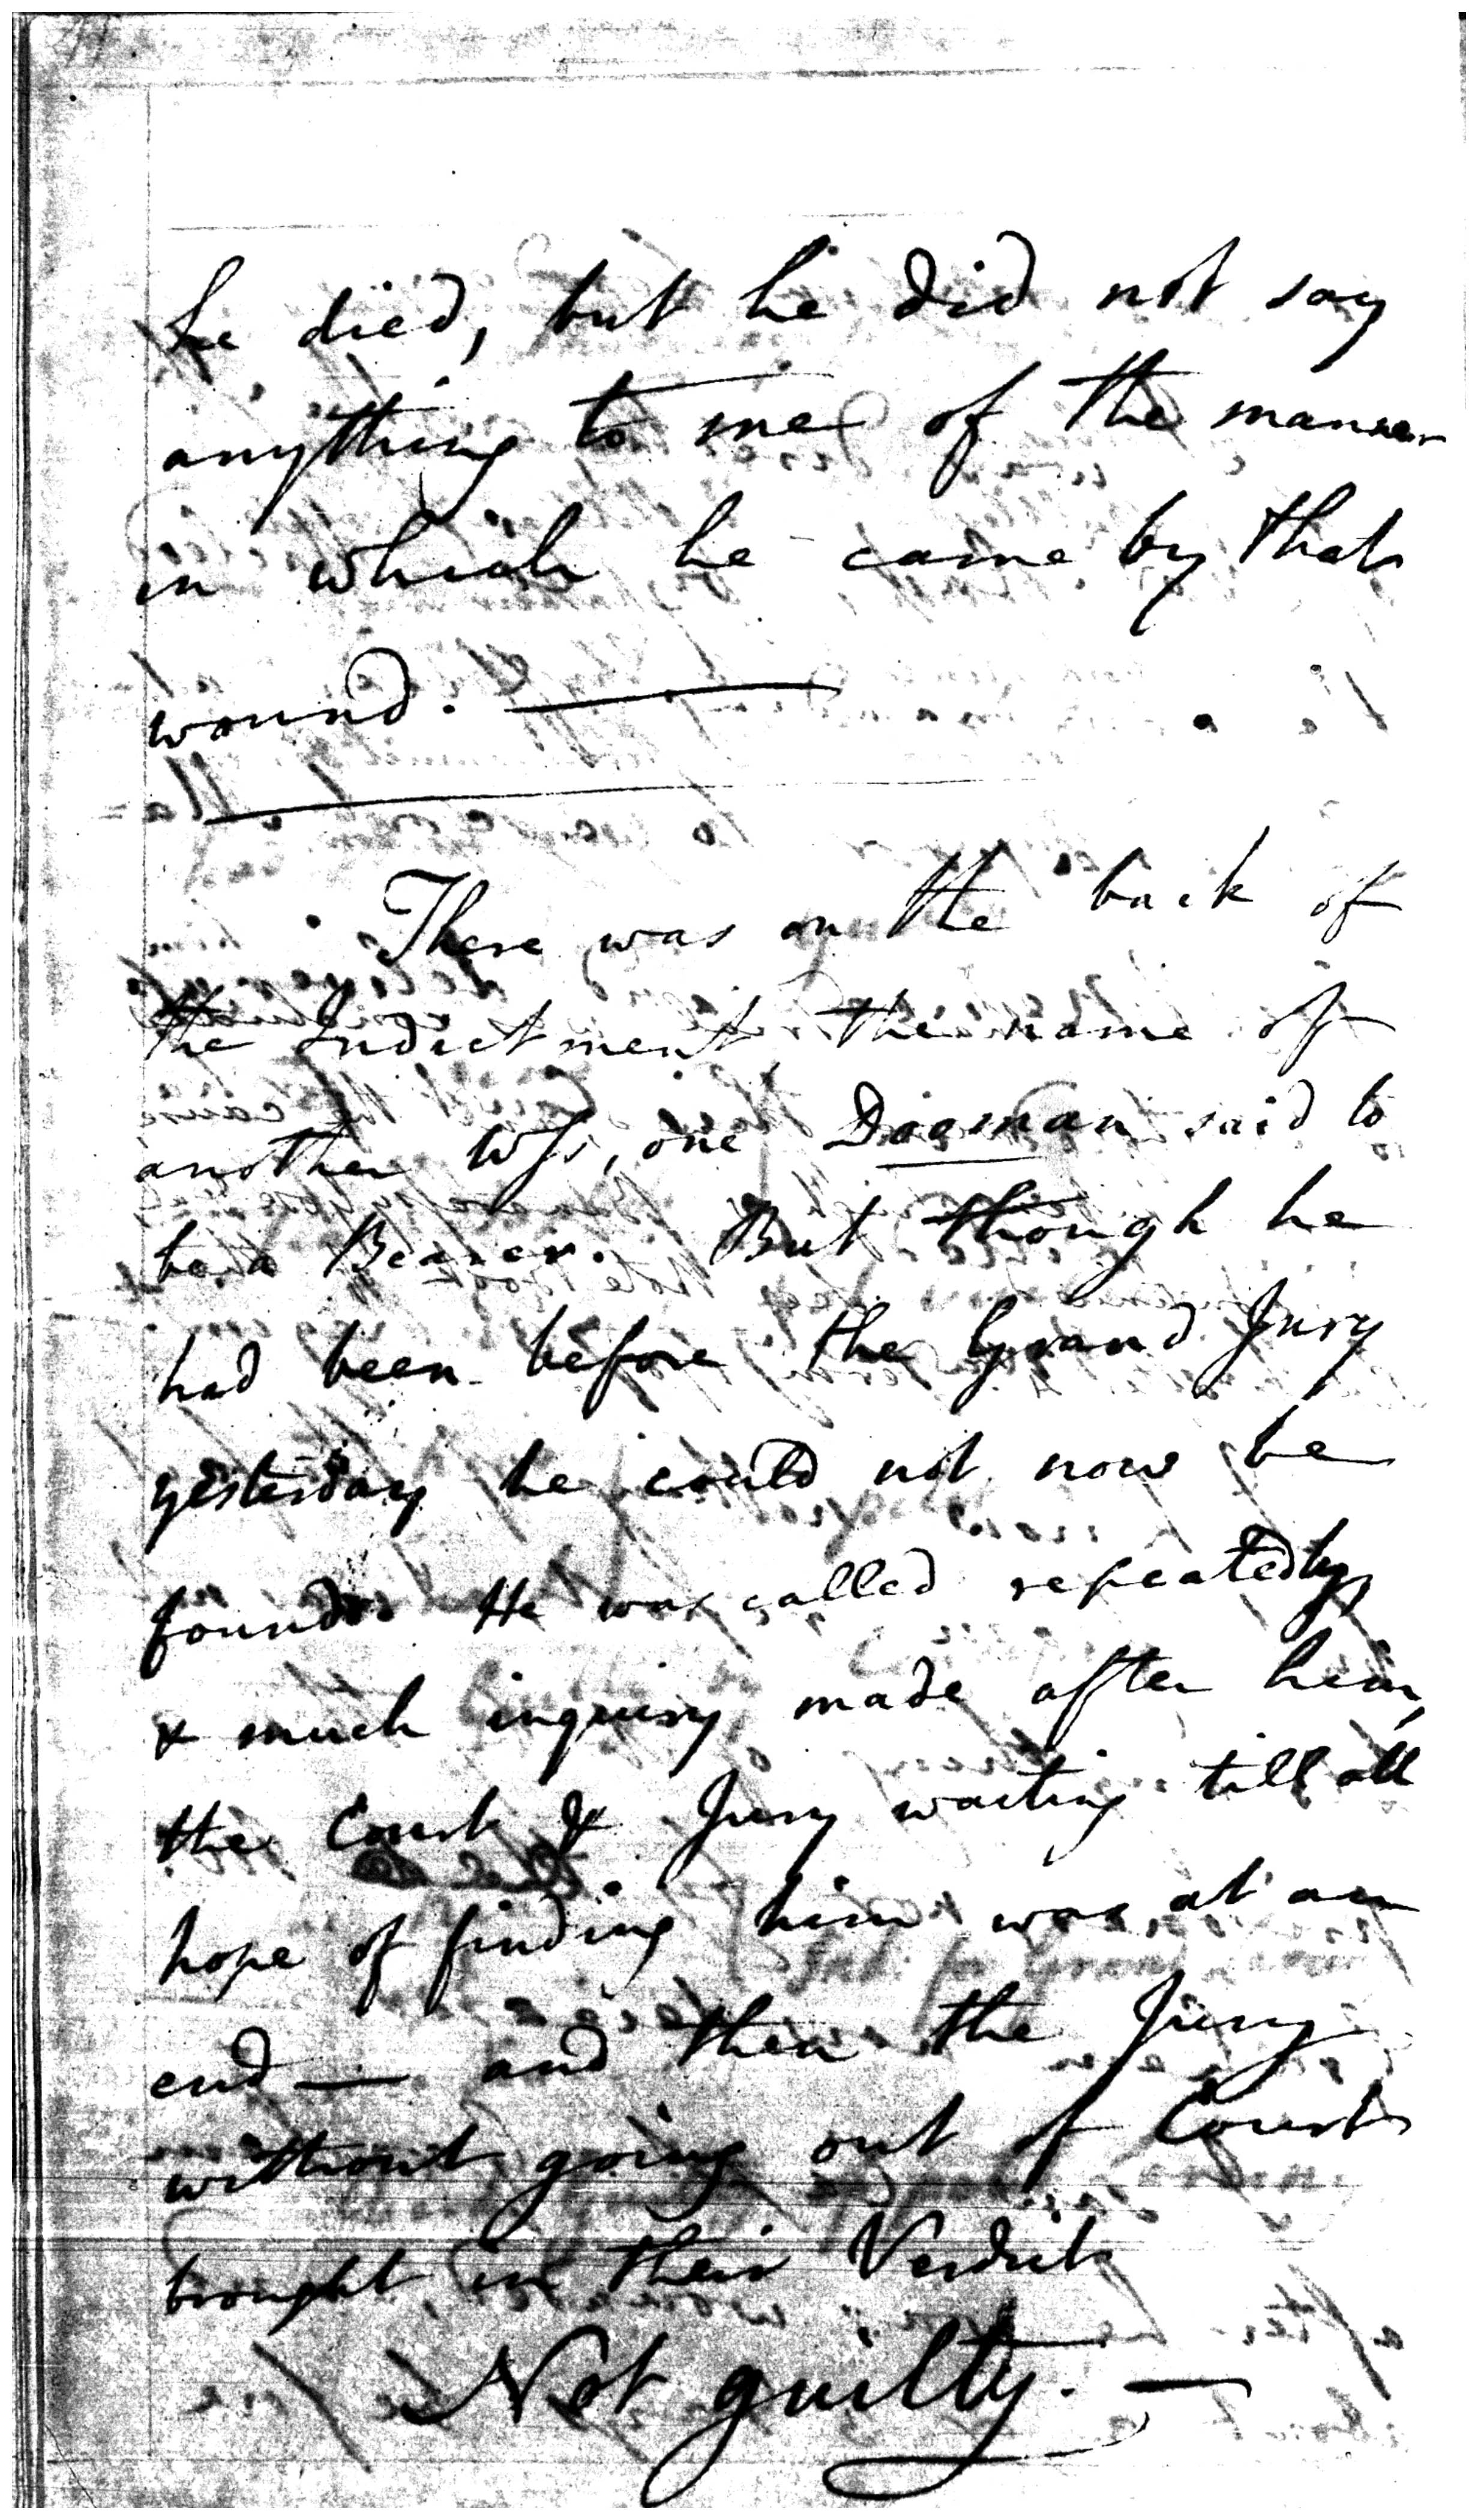 he died, but he did not say
anything to me of the manner
in which he came by that
wound. —
There was on the back of
the Indictment the name of
another Wss, one Daeman said to
be a Bearer. But though he
had been before the Grand Jury
yesterday he could not now be
found. He was called repeatedly
& much inquiry made after him,
the Court & Jury waiting till all
hope of finding him was at an
end — and then the Jury
without going out of Court
brought in their Verdict
Not guilty. —